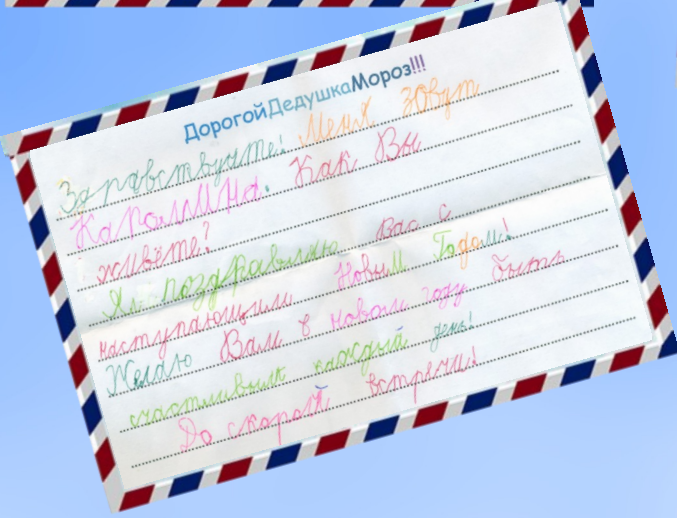 ДорогойДедушкаМороз!!!
Здравствуйте! Меня зовут
Каролина. Как Вы
живёте?
Я поздравляю Вас с
наступающим Новым Годом!
Желаю Вам в новом году быть
счастливым каждый день!
До скорой встречи!